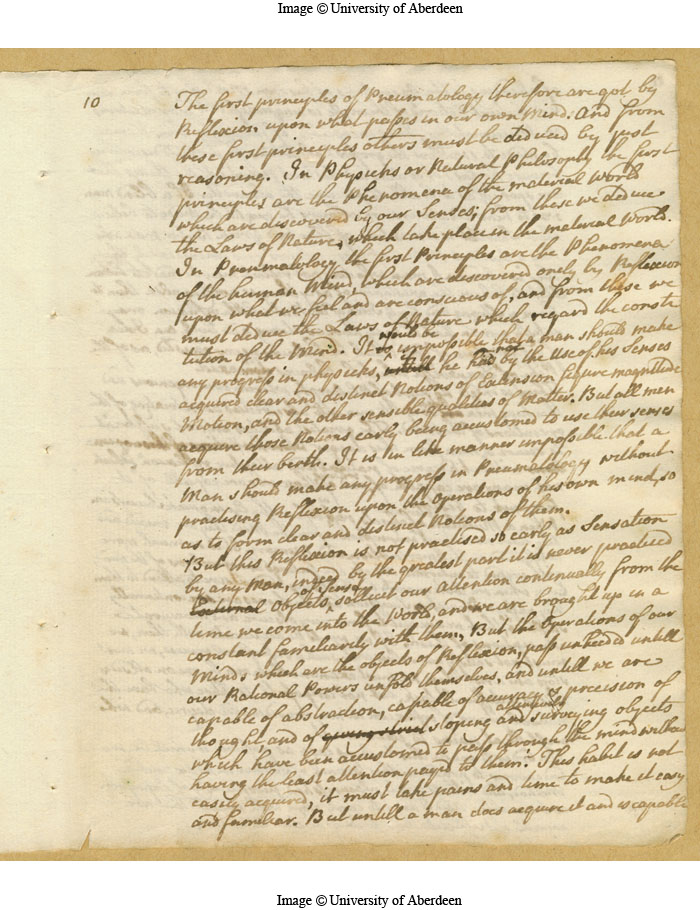 Image © University of Aberdeen
10
The first principles of Pneumatology therefore are got by
Reflexion upon what passes in our own Mind. And from
these first principles others must be deduced by just
reasoning. In Physicks or Natural Philosophy the first
principles are the Phenomena of the material World
which are discovered by our Senses; from these we deduce
the Laws of Nature, which take place in the material World.
In Pneumatology the first Principles are the Phenomena
of the human Mind, which are discovered onely by Reflexion
upon what we feel and are conscious of, and from these we
must deduce the Laws of Nature which regard the consti
tution of the Mind. It would be impossible that a man should make
any progress in physicks, if he had not by the Use of his Senses
acquired clear and distinct Notions of Extension figure magnitude
Motion, and the other sensible qualities of Matter. But all men
acquire those Notions early being accustomed to use their senses
from their birth. It is in like manner impossible that a
Man should make any progress in Pneumatology without
practising Reflexion upon the operations of his own mind, so
as to form clear and distinct Notions of them.
But this Reflexion is not practised so early as Sensation
by any Man, indeed by the greatest part it is never practised
External Objects of Sense sollicit our attention continually from the
time we come into the World, and we are brought up in a
constant familiarity with them, But the Operations of our
Minds which are the objects of Reflexion, pass unheeded untill
our Rational Powers unfold themselves, and untill we are
capable of abstraction, capable of accuracy & precision of
thought, and of stoping and attentively surveying objects
which have been accustomed to pass through the mind withou
having the least attention payed to them. This habit is not
easily acquired, it must take pains and time to make it easy
and familiar. But untill a man does acquire it and is capable
Image © University of Aberdeen